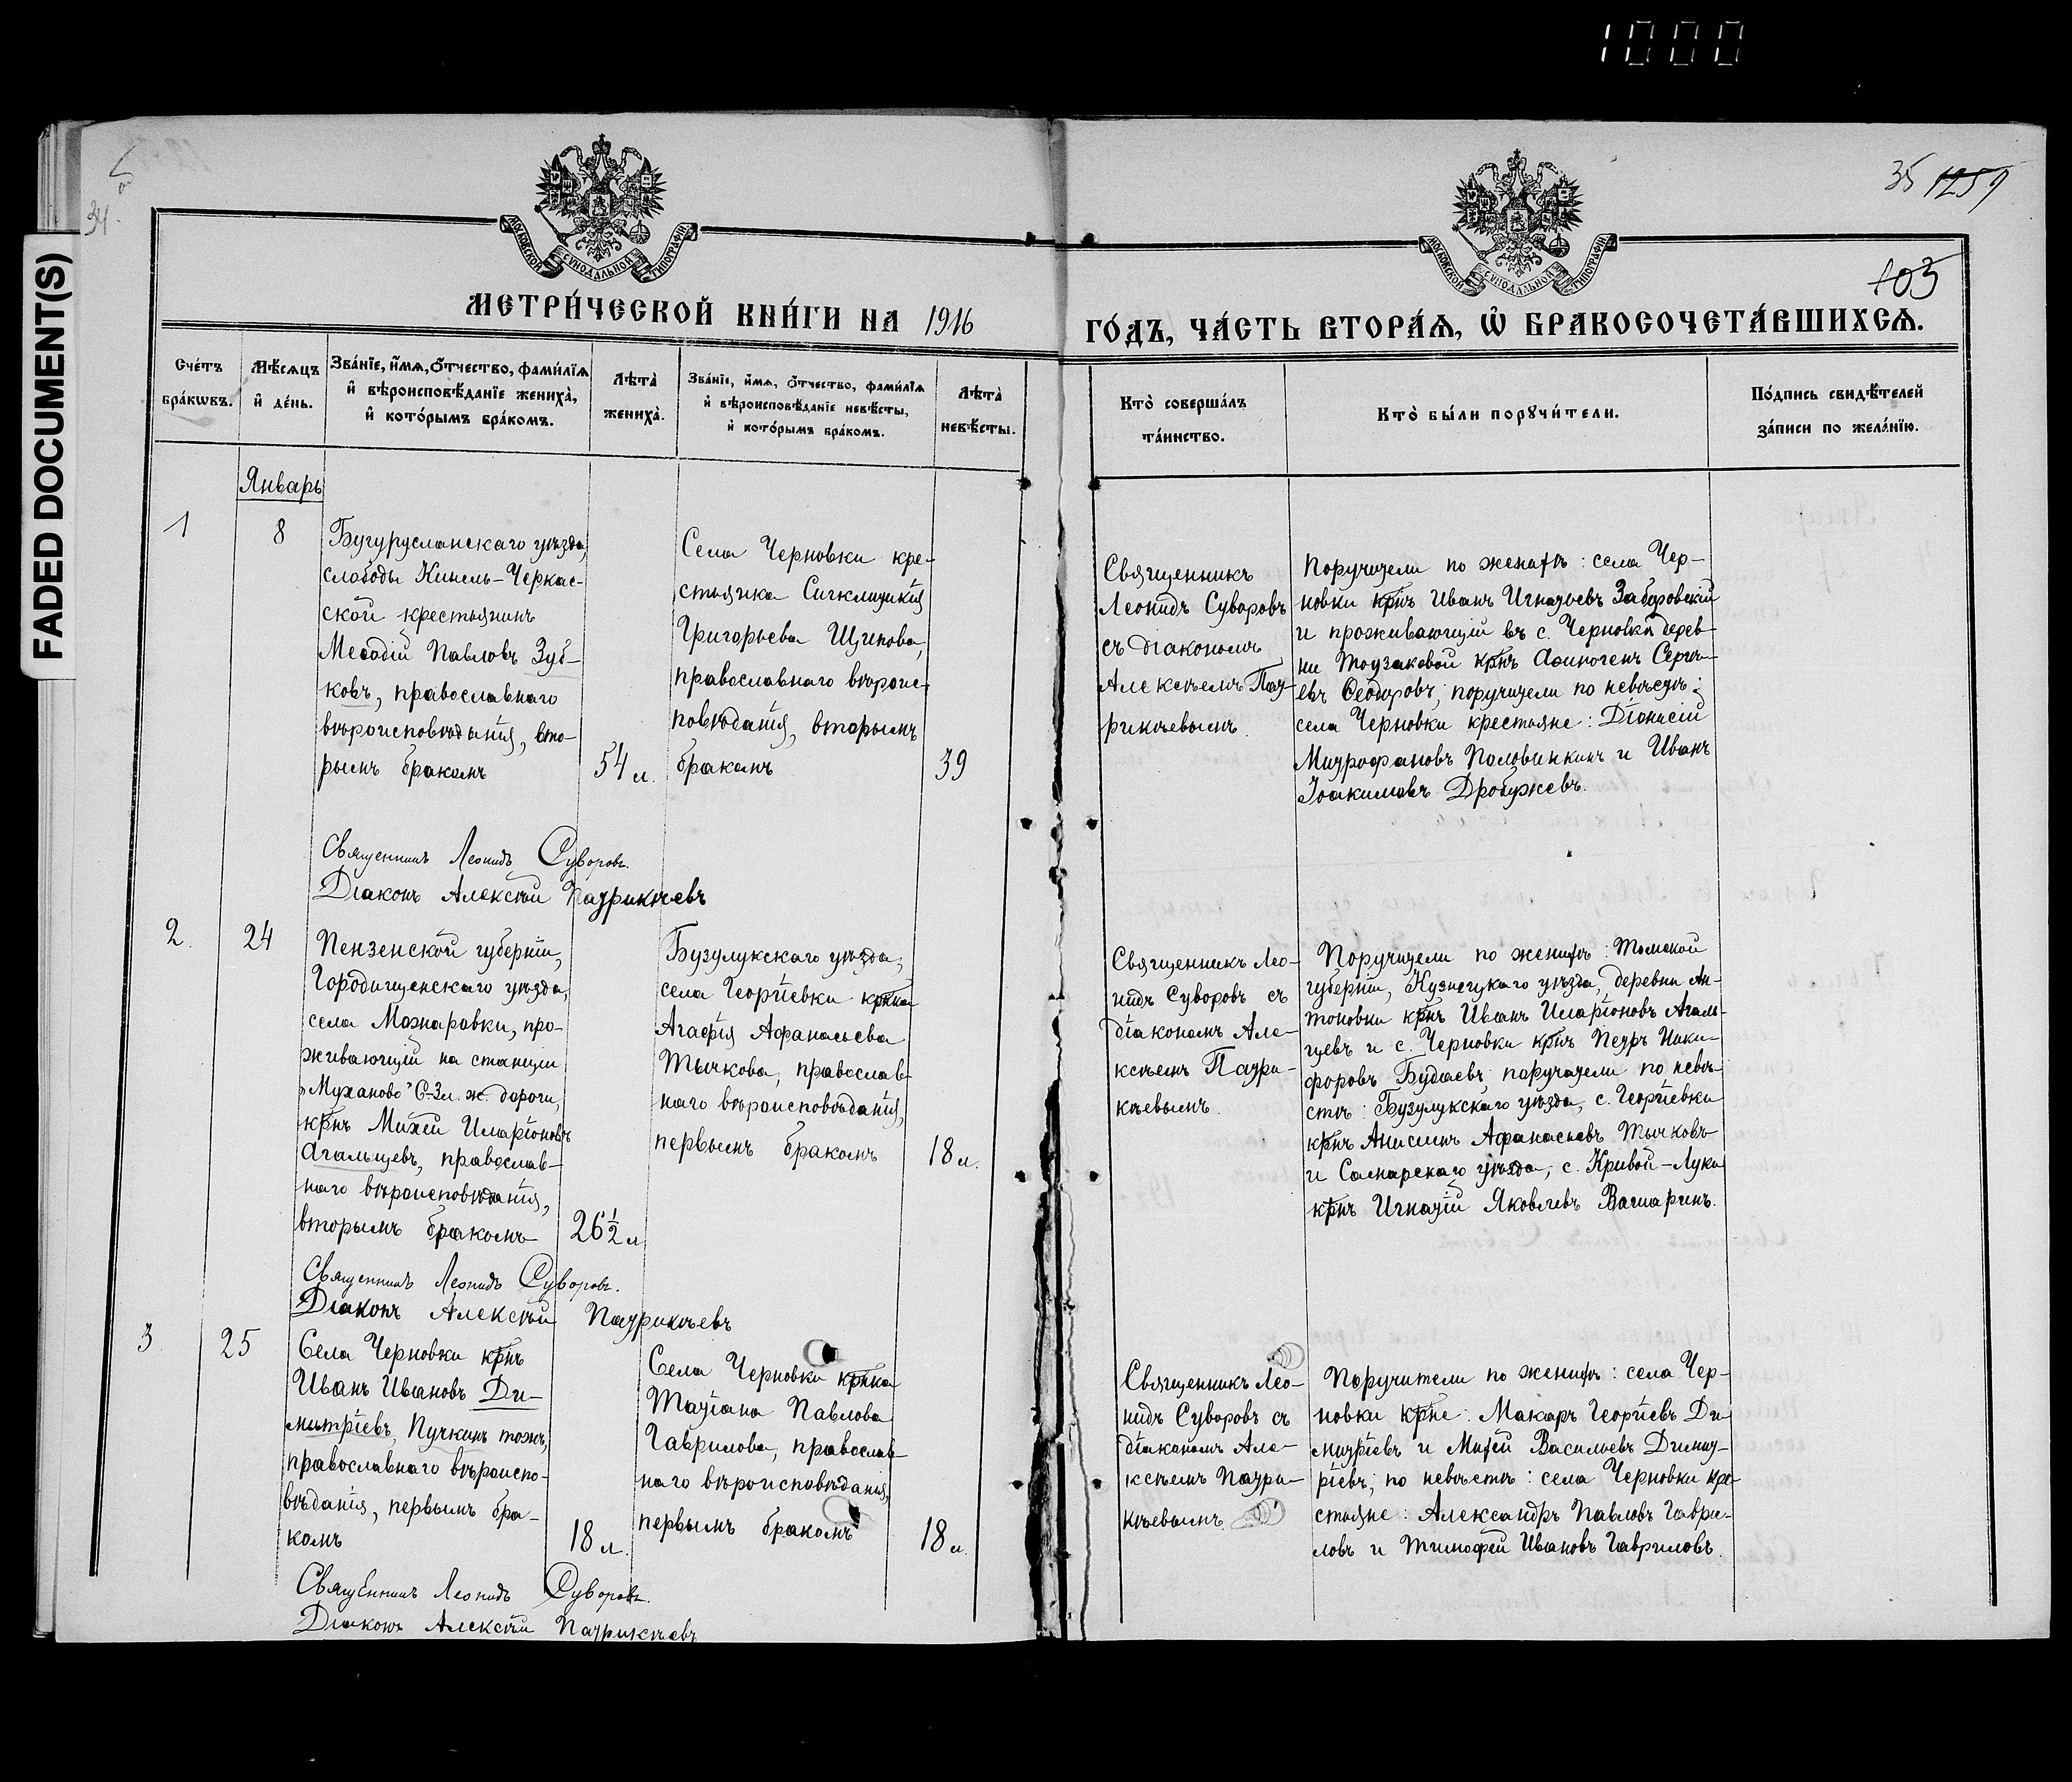 1000
FADED DOCUMENT(S)
34
35 1259
103
МОСКОВСКОЙ СѴНОДАЛЬНОЙ ТИПОГРАФІИ
МОСКОВСКОЙ СѴНОДАЛЬНОЙ ТИПОГРАФІИ
МЕТРИ́ЧЕСКОЙ КНИ́ГИ НА 1916
ГО́ДЪ, ЧА́СТЬ ВТОРА́Ѧ, Ѡ҆ БРАКОСОЧЕТА́ВШИХСѦ.
Сче́тъ
бра́кѡвъ.
Мѣ́сѧцъ
и҆ де́нь.
Зва́нїе, и҆́мѧ, ѻ҆́тчество, фами́лїѧ
и҆ вѣроисповѣ́данїе жениха̀,
и҆ кото́рымъ бра́комъ.
Лѣта̀
жениха̀.
Зва́нїе, и҆́мѧ, ѻ҆́тчество, фами́лїѧ
и҆ вѣроисповѣ́данїе невѣ́сты,
и҆ кото́рымъ бра́комъ.
Лѣта̀
невѣ́сты.
Кто̀ соверша́лъ
та́инство.
Кто̀ бы́ли порꙋчи́тели.
По́дпись свидѣ́телей
за́писи по жела́нїю.
Январь
1
8
Бугурусланскаго уѣзда,
слободы Кинель-Черкас-
ской крестьянинъ
Меѳодій Павловъ Зуб-
ковъ, православнаго
вѣроисповѣданія, вто-
рымъ бракомъ
54 л.
Села Черновки кре-
стьянка Синклитикія
Григорьева Щипова,
православнаго вѣроис-
повѣданія, вторымъ
бракомъ
39
Священникъ
Леонидъ Суворовъ
съ діакономъ
Алексѣемъ Пат-
рикѣевымъ.
Поручители по женихѣ: села Чер-
новки крнъ Иванъ Игнатьевъ Заборовскій
и проживающій въ с. Черновкѣ дерев-
ни крнъ Аѳиногенъ Серге-
евъ Ѳеодоровъ; поручители по невѣстѣ:
села Черновки крестьяне: Діонисій
Митрофановъ Половинкинъ и Иванъ
Іоакимовъ Дробужевъ.
Священникъ Леонидъ Суворовъ.
Діаконъ Алексѣй Патрикѣевъ
2.
24
Пензенской губерніи,
Городищенскаго уѣзда,
села Можаровки, про-
живающій на станціи
„Муханово" С-Зл. ж. дороги,
крнъ Михей Иларіоновъ
Агальцевъ, православ-
наго вѣроисповѣданія,
вторымъ бракомъ
26½ л
Бузулукскаго уѣзда,
села Георгіевки крнка
Агафія Афанасьева
Тычкова, православ-
наго вѣроисповѣданія,
первымъ бракомъ
18 л.
Священникъ Лео-
нидъ Суворовъ съ
діакономъ Але-
ксѣемъ Патри-
кѣевымъ.
Поручители по женихѣ: Томской
губерніи, Кузнецкаго уѣзда, деревни Ан-
тоновки крнъ Иванъ Иларіоновъ Агаль-
цевъ и с. Черновки крнъ Петръ Ники-
форовъ Будаевъ; поручители по невѣ-
стѣ: Бузулукскаго уѣзда, с. Георгіевки
крнъ Анисимъ Афанасьевъ Тычковъ
и Самарскаго уѣзда, с. Кривой-Луки
крнъ Игнатій Яковлевъ Вашаринъ.
Священникъ Леонидъ Суворовъ.
Діаконъ Алексѣй Патрикѣевъ
3
25
Села Черновки крнъ
Иванъ Ивановъ Ди-
митріевъ, Пучкинъ тожъ,
православнаго вѣроиспо-
вѣданія, первымъ бра-
комъ
18 л.
Села Черновки крнка
Татіана Павлова
Гаврилова, православ-
наго вѣроисповѣданія,
первымъ бракомъ
18 л.
Священникъ Лео-
нидъ Суворовъ съ
діакономъ Але-
ксѣемъ Патри-
кѣевымъ.
Поручители по женихѣ: села Чер-
новки крне: Макаръ Георгіевъ Ди-
митріевъ и Михей Васильевъ Димит-
ріевъ; по невѣстѣ: села Черновки кре-
стьяне: Александръ Павловъ Гаври-
ловъ и Тимофей Ивановъ Гавриловъ.
Священникъ Леонидъ Суворовъ.
Діаконъ Алексѣй Патрикѣевъ